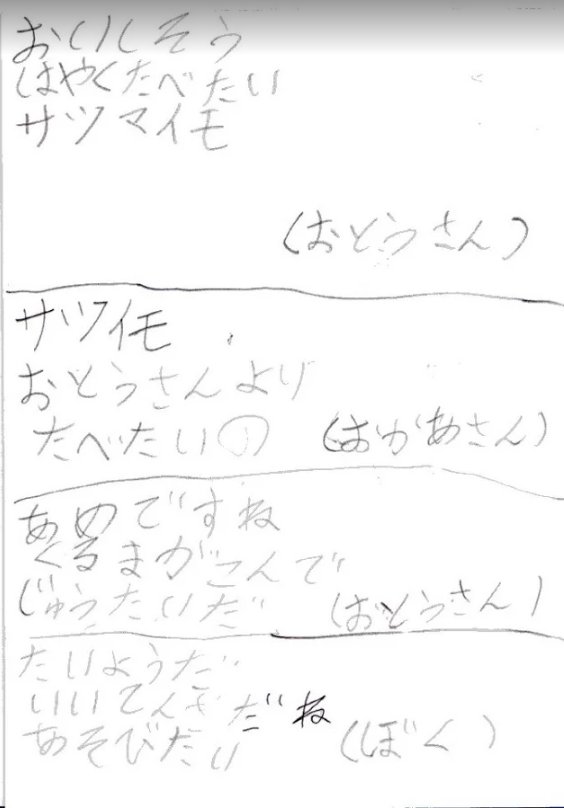 おいしそう
はやくたべたい
サツマイモ
(おとうさん)
サツイモ
おとうさんより
たべたいの (おかあさん)
あめですね
くるまがこんで
じゅうたいだ (おとうさん)
たいようだ
いいてんきだね
あそびたい (ぼく)